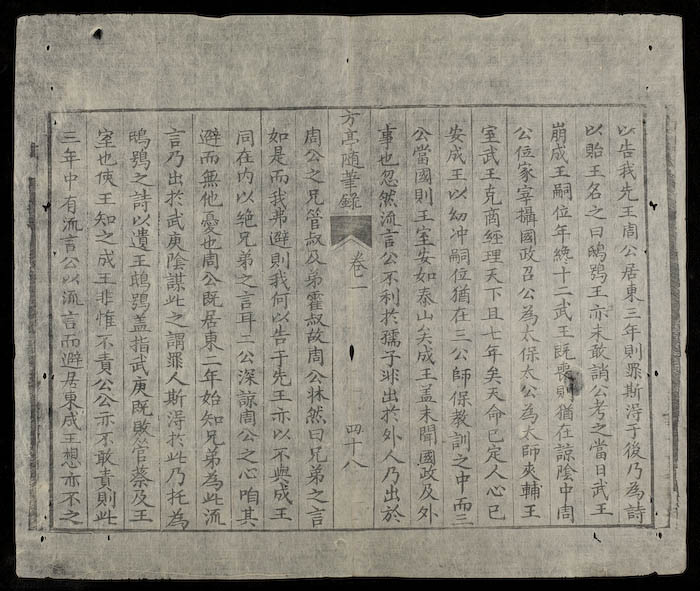 以告我先王周公居東三年則罪斯淂于後乃為詩
以貽王名之曰鴟鴞王亦未敢誚公考之當日武王
崩成王嗣位年終十二武王既喪則猶在諒陰中周
公位冢宰攝國政召公為太保太公為太師夾輔王
室武王克啇經理天下且七年矣天命已定人心已
安成王以幼冲嗣位猶在三公師保教訓之中而三
公當國則王室安如泰山矣成王盖未聞國政及外
事也忽然流言公不利於孺子非出於外人乃出於
方亭隨筆錄 卷一 四十八
周公之兄管叔及弟霍叔故周公怵然曰兄弟之言
如是而我弗避則我何以告于先王亦以不與成王
同在内以絶兄弟之言耳二公深諒周公之心咱其
避而無他憂也周公既居東二年始知兄弟為此流
言乃出於武庚陰謀此之謂罪人斯淂於此乃托為
鴟鴞之詩以遺王鴟鴞盖指武庚既敗管蔡及王
室也使王知之成王非惟不責公公亦不敢責則此
三年中有流言公以流言而避居東成王想亦不之